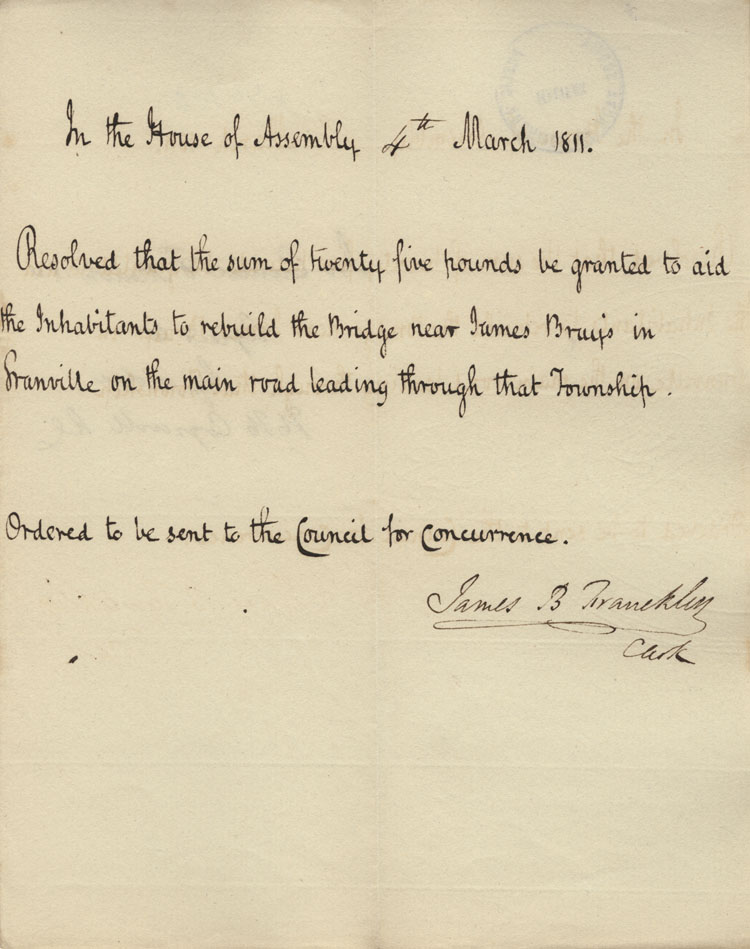 In the House of Assembly 4th March 1811.
Resolved that the sum of twenty five pounds be granted to aid
the Inhabitants to rebuild the Bridge near James Bray's in
Granville on the main road leading through that Township.
Ordered to be sent to the Council for Concurrence.
James B Franckley
Clerk